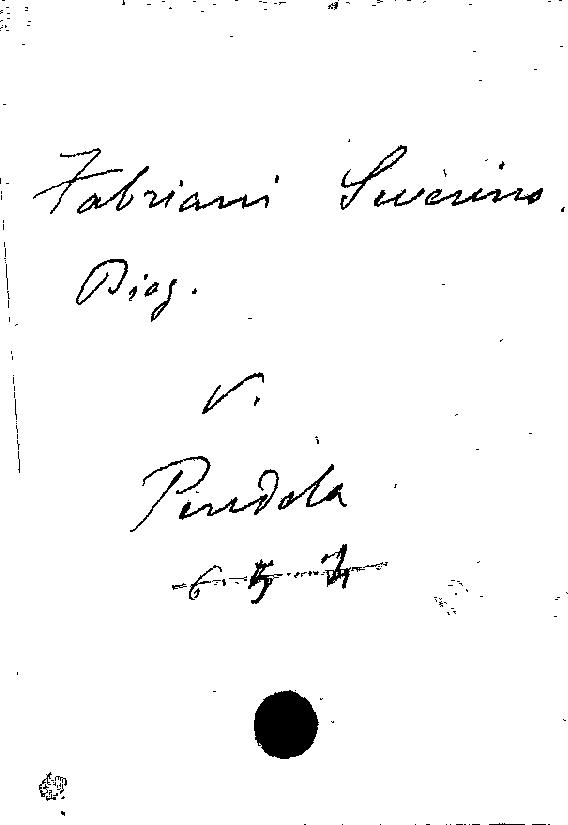 Fabriani Severino.
Biog.
V.
Pendola
6 5 2